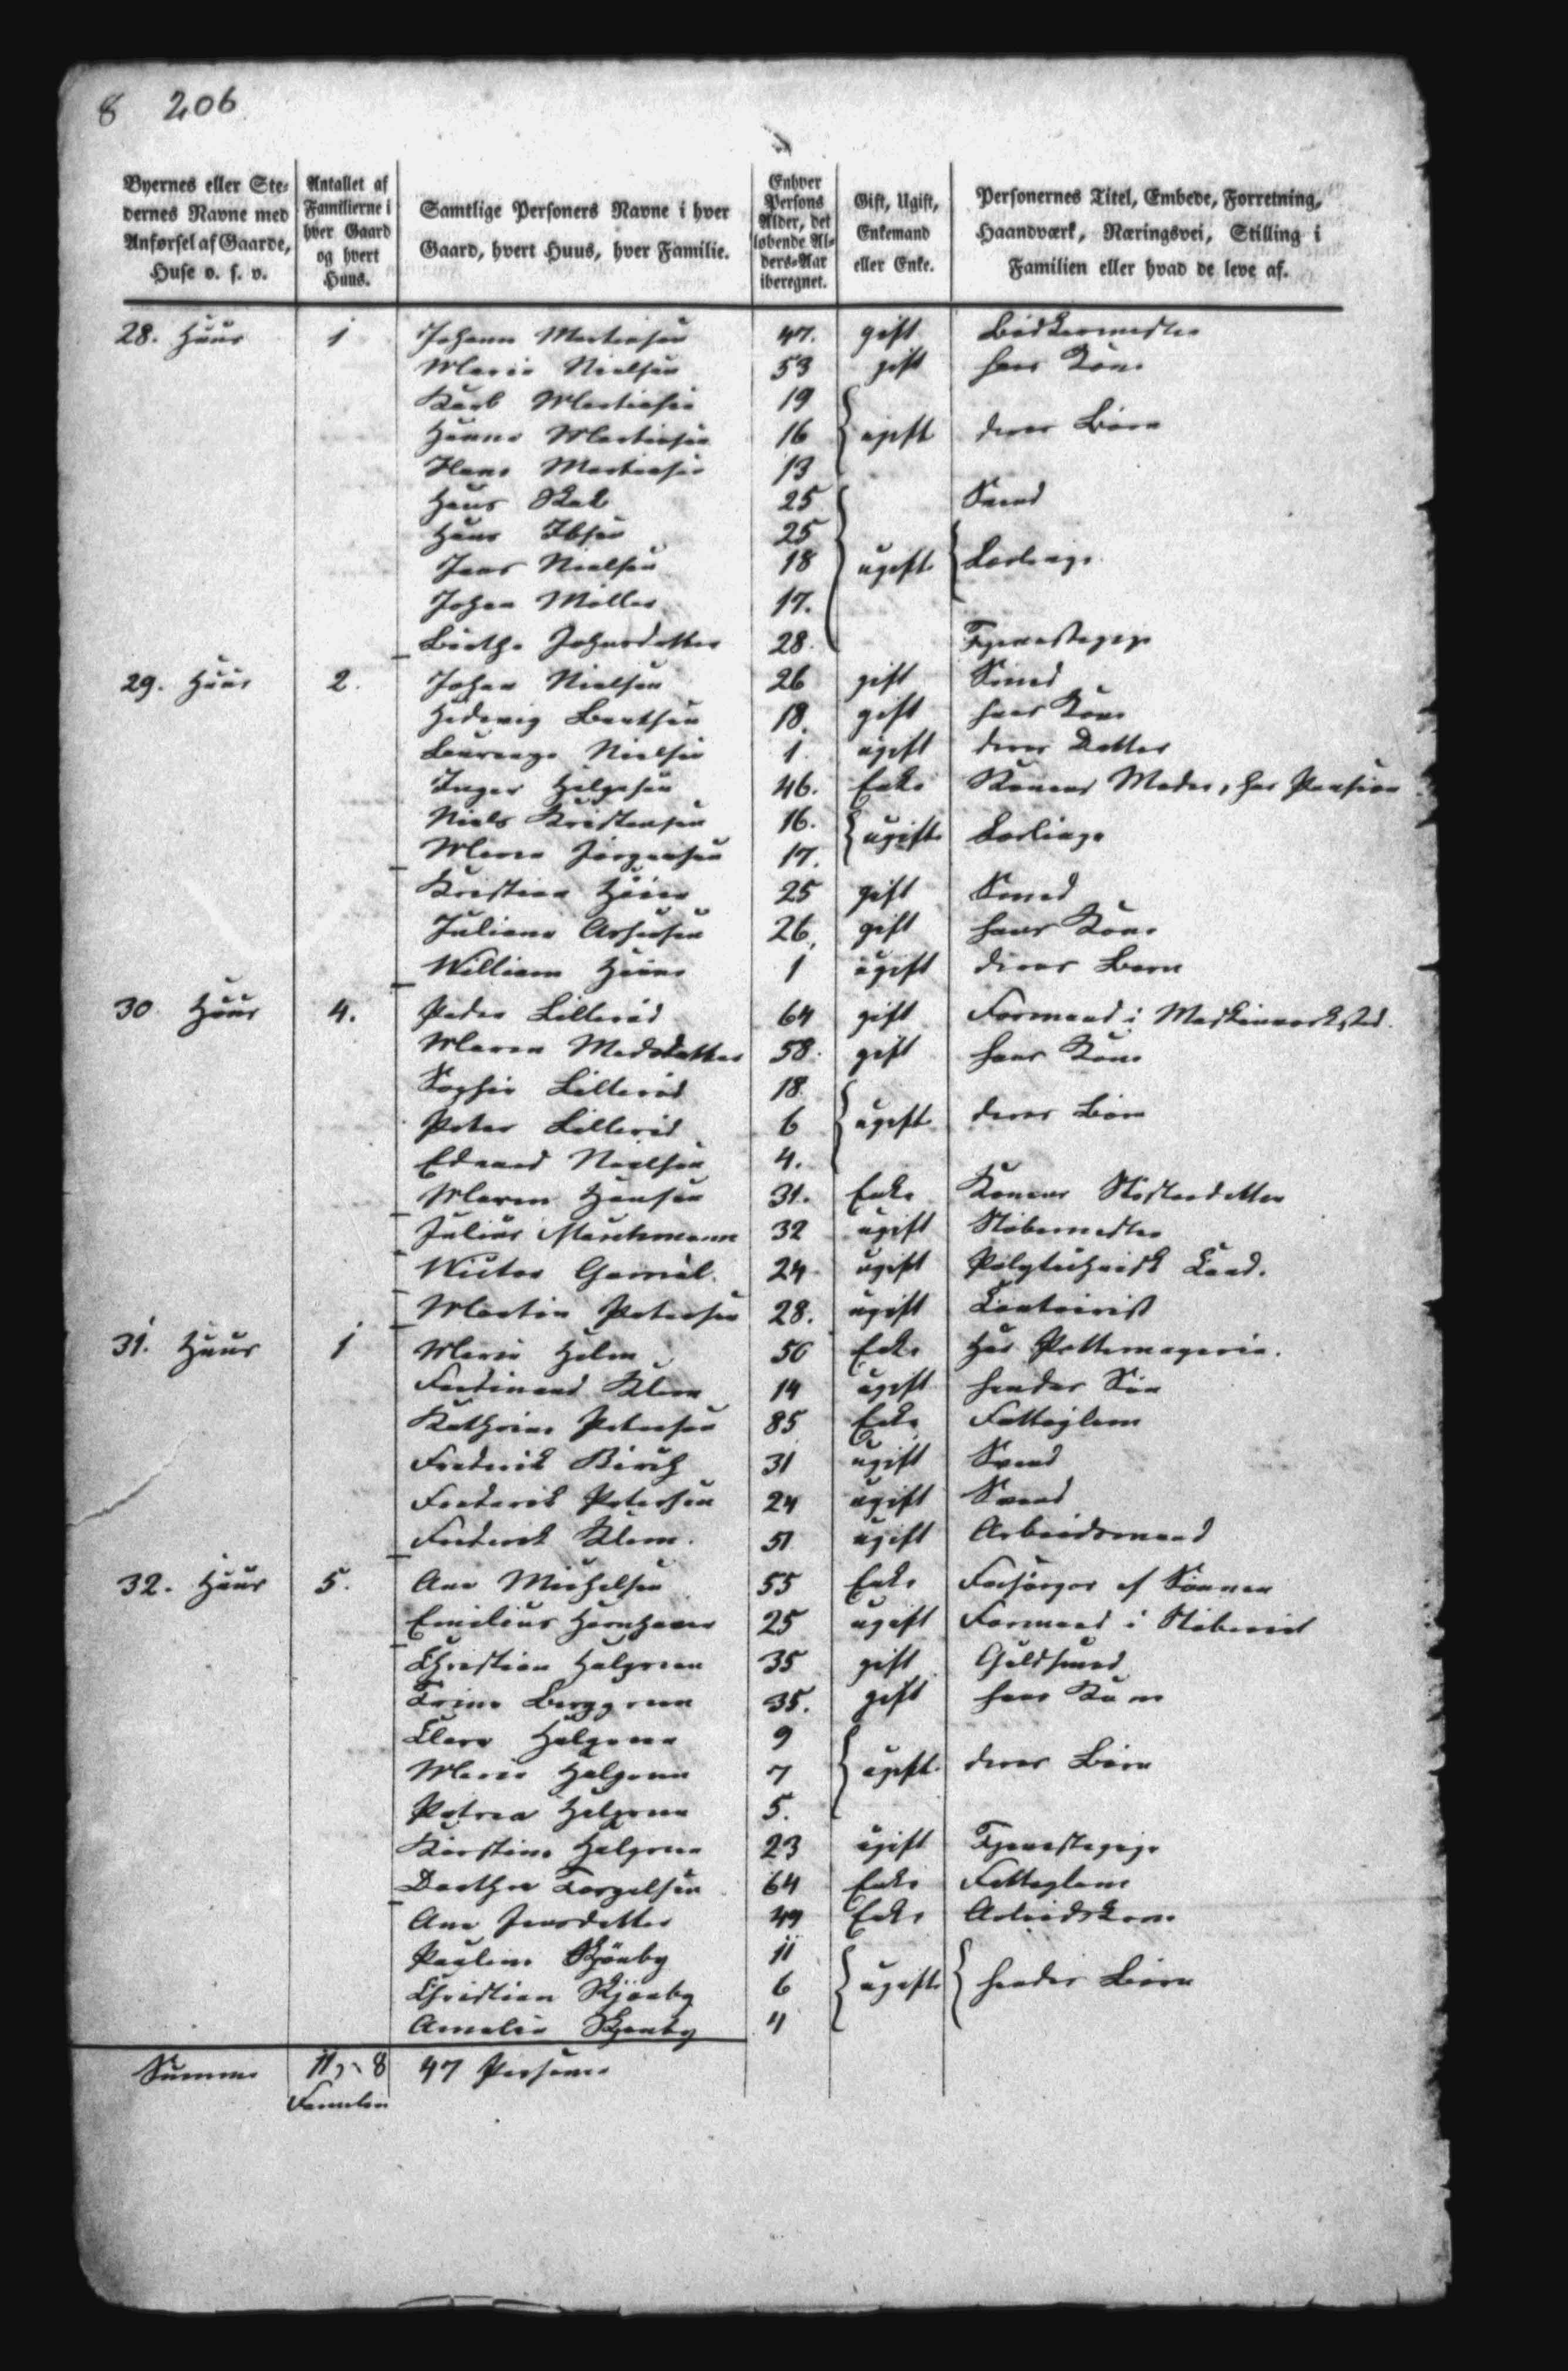 8 206
Byernes eller Ste-
dernes Navne med
Anførsel af Gaarde,
Huse o. s. v.
Antallet af
Familierne i
hver Gaard
og hvert
Huus.
Samtlige Personers Navne i hver
Gaard, hvert Huus, hver Familie.
Enhver
Persons
Alder, det
løbende Al-
ders-Aar
iberegnet.
Gift, Ugift,
Enkemand
eller Enke.
Personernes Titel, Embede, Forretning,
Haandværk, Næringsvei, Stilling i
Familien eller hvad de leve af.
28. Huus 1 Johann Martinsen 47. gift Bødkermester
Marie Nielsen 53 gift hans Kone
Karl Martinsen 19
Hanne Martinsen 16 ugift deres Børn
Hans Martinsen 13
Hans 25 Svend
Hans Ibsen 25
Jens Nielsen 18 ugifte Lærlinge
Johan Møller 17.
Birthe Johnsdatter 28 Tjenestepige
29. Huus 2. Johan Nielsen 26 gift Smed
Hedevig Bentsen 18. gift hans Kone
Nielsen 1 ugift deres Datter
Inger Helgesen 46. Enke Konens Moder, har Pension
Niels Kristensen 16. ugifte Lærlinge
Jørgensen 17.
Kristian 25 gift Smed
Juliane 26, gift hans Kone
William 1 ugift deres Barn
30 Huus 4. Peder Lillerød 64 gift Formand i Maskinværksted.
Maren Madsdatter 58. gift hans Kone
Sophie Lillerød 18.
Peter Lillerød 6 ugift deres Børn
Edvard Nielsen 4.
Maren Hansen 31. Enke Konens Søsterdatter
Julius 32 ugift Støbemester
Victor 24 ugift Polytechnisk Cand.
Martin Petersen 28. ugift Contoirist
31. Huus 1 Marie Holm 50 Enke Har Pottemageri.
Ferdinand Klem 14 ugift hendes Søn
Kathrine Petersen 85 Enke Fattiglem
Frederik Birch 31 ugift Svend
Frederik Petersen 24 ugift Svend
Frederik Klem. 51 ugift Arbeidsmand
32. Huus 5. Ane Michelsen 55 Enke Forsørges af Sønnen
Emilius 25 ugift Formand i Støberiet
Christian Halgreen 35 gift Guldsmed
Trine Berggreen 35. gift hans Kone
Clara Halgreen 9
Marie Halgreen 7 ugift. deres Børn
Petrea Halgreen 5.
Kirstine Halgreen 23 ugift Tjenestepige
Dorthea Torgelsen 64 Enke Fattiglem
Ane Jensdatter 49 Enke Arbeidskone
Pauline Skjønby 11
Christian Skjønby 6 ugifte hendes Børn
Amalie Skjønby 4
Summa 8 47 Personer
Familier